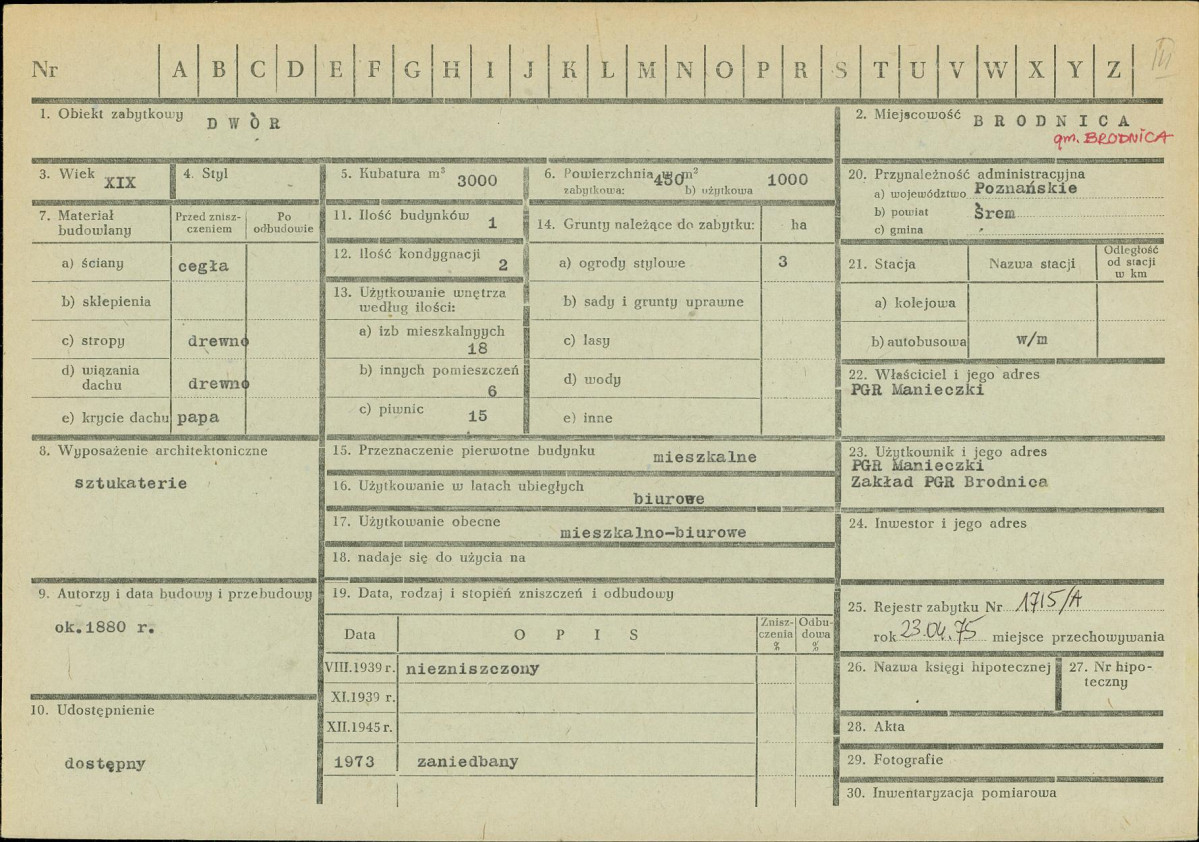 Nr A B C D E F G H I J K L M N O P R S T U V W X Y Z III
1. Obiekt zabytkowy DWÓR
2. Miejscowość BRODNICA
gm. BRODNICA
3. Wiek XIX
4. Styl
5. Kubatura m³ 3000
6. Powierzchnia w m² 450 1000
zabytkowa: b) użytkowa
20. Przynależność administracyjna
a) województwo Poznańskie
b) powiat Śrem
c) gmina
7. Materiał budowlany
Przed zniszczeniem
Po odbudowie
a) ściany cegła
b) sklepienia
c) stropy drewno
d) wiązania dachu drewno
e) krycie dachu papa
11. Ilość budynków 1
12. Ilość kondygnacji 2
13. Użytkowanie wnętrza według ilości:
a) izb mieszkalnyych 18
b) innych pomieszczeń 6
c) piwnic 15
14. Grunty należące do zabytku: ha
a) ogrody stylowe 3
b) sady i grunty uprawne
c) lasy
d) wody
e) inne
21. Stacja
Nazwa stacji
Odległość od stacji w km
a) kolejowa
b) autobusowa w/m
22. Właściciel i jego adres
PGR Manieczki
8. Wyposażenie architektoniczne
sztukaterie
15. Przeznaczenie pierwotne budynku mieszkalne
16. Użytkowanie w latach ubiegłych biurowe
17. Użytkowanie obecne mieszkalno-biurowe
18. nadaje się do użycia na
23. Użytkownik i jego adres
PGR Manieczki
Zakład PGR Brodnica
24. Inwestor i jego adres
9. Autorzy i data budowy i przebudowy
ok.1880 r.
19. Data, rodzaj i stopień zniszczeń i odbudowy
Data OPIS Zniszczenia % Odbudowa %
VIII.1939 r. niezniszczony
XI.1939 r.
XII.1945 r.
1973 zaniedbany
25. Rejestr zabytku Nr 1715/A
rok 23.04.75 miejsce przechowywania
26. Nazwa księgi hipotecznej
27. Nr hipoteczny
10. Udostępnienie
dostępny
28. Akta
29. Fotografie
30. Inwentaryzacja pomiarowa